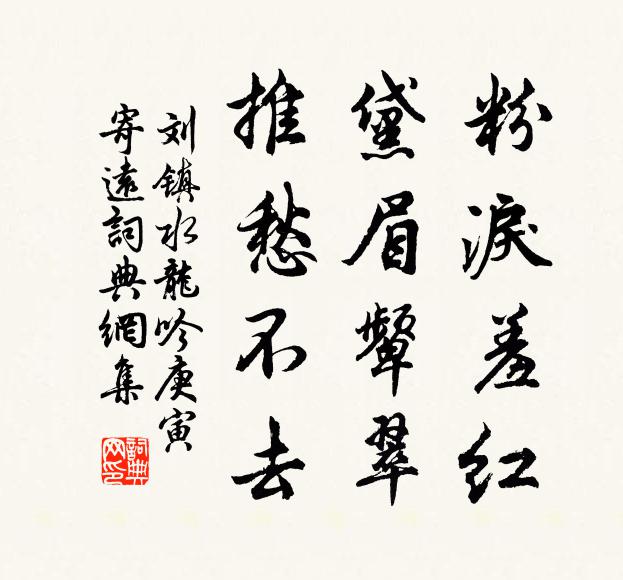 粉淚羞红
黛眉颦翠
推愁不去
刘镇水龍吟庚寅
寄遠詞典網集
詞典网印